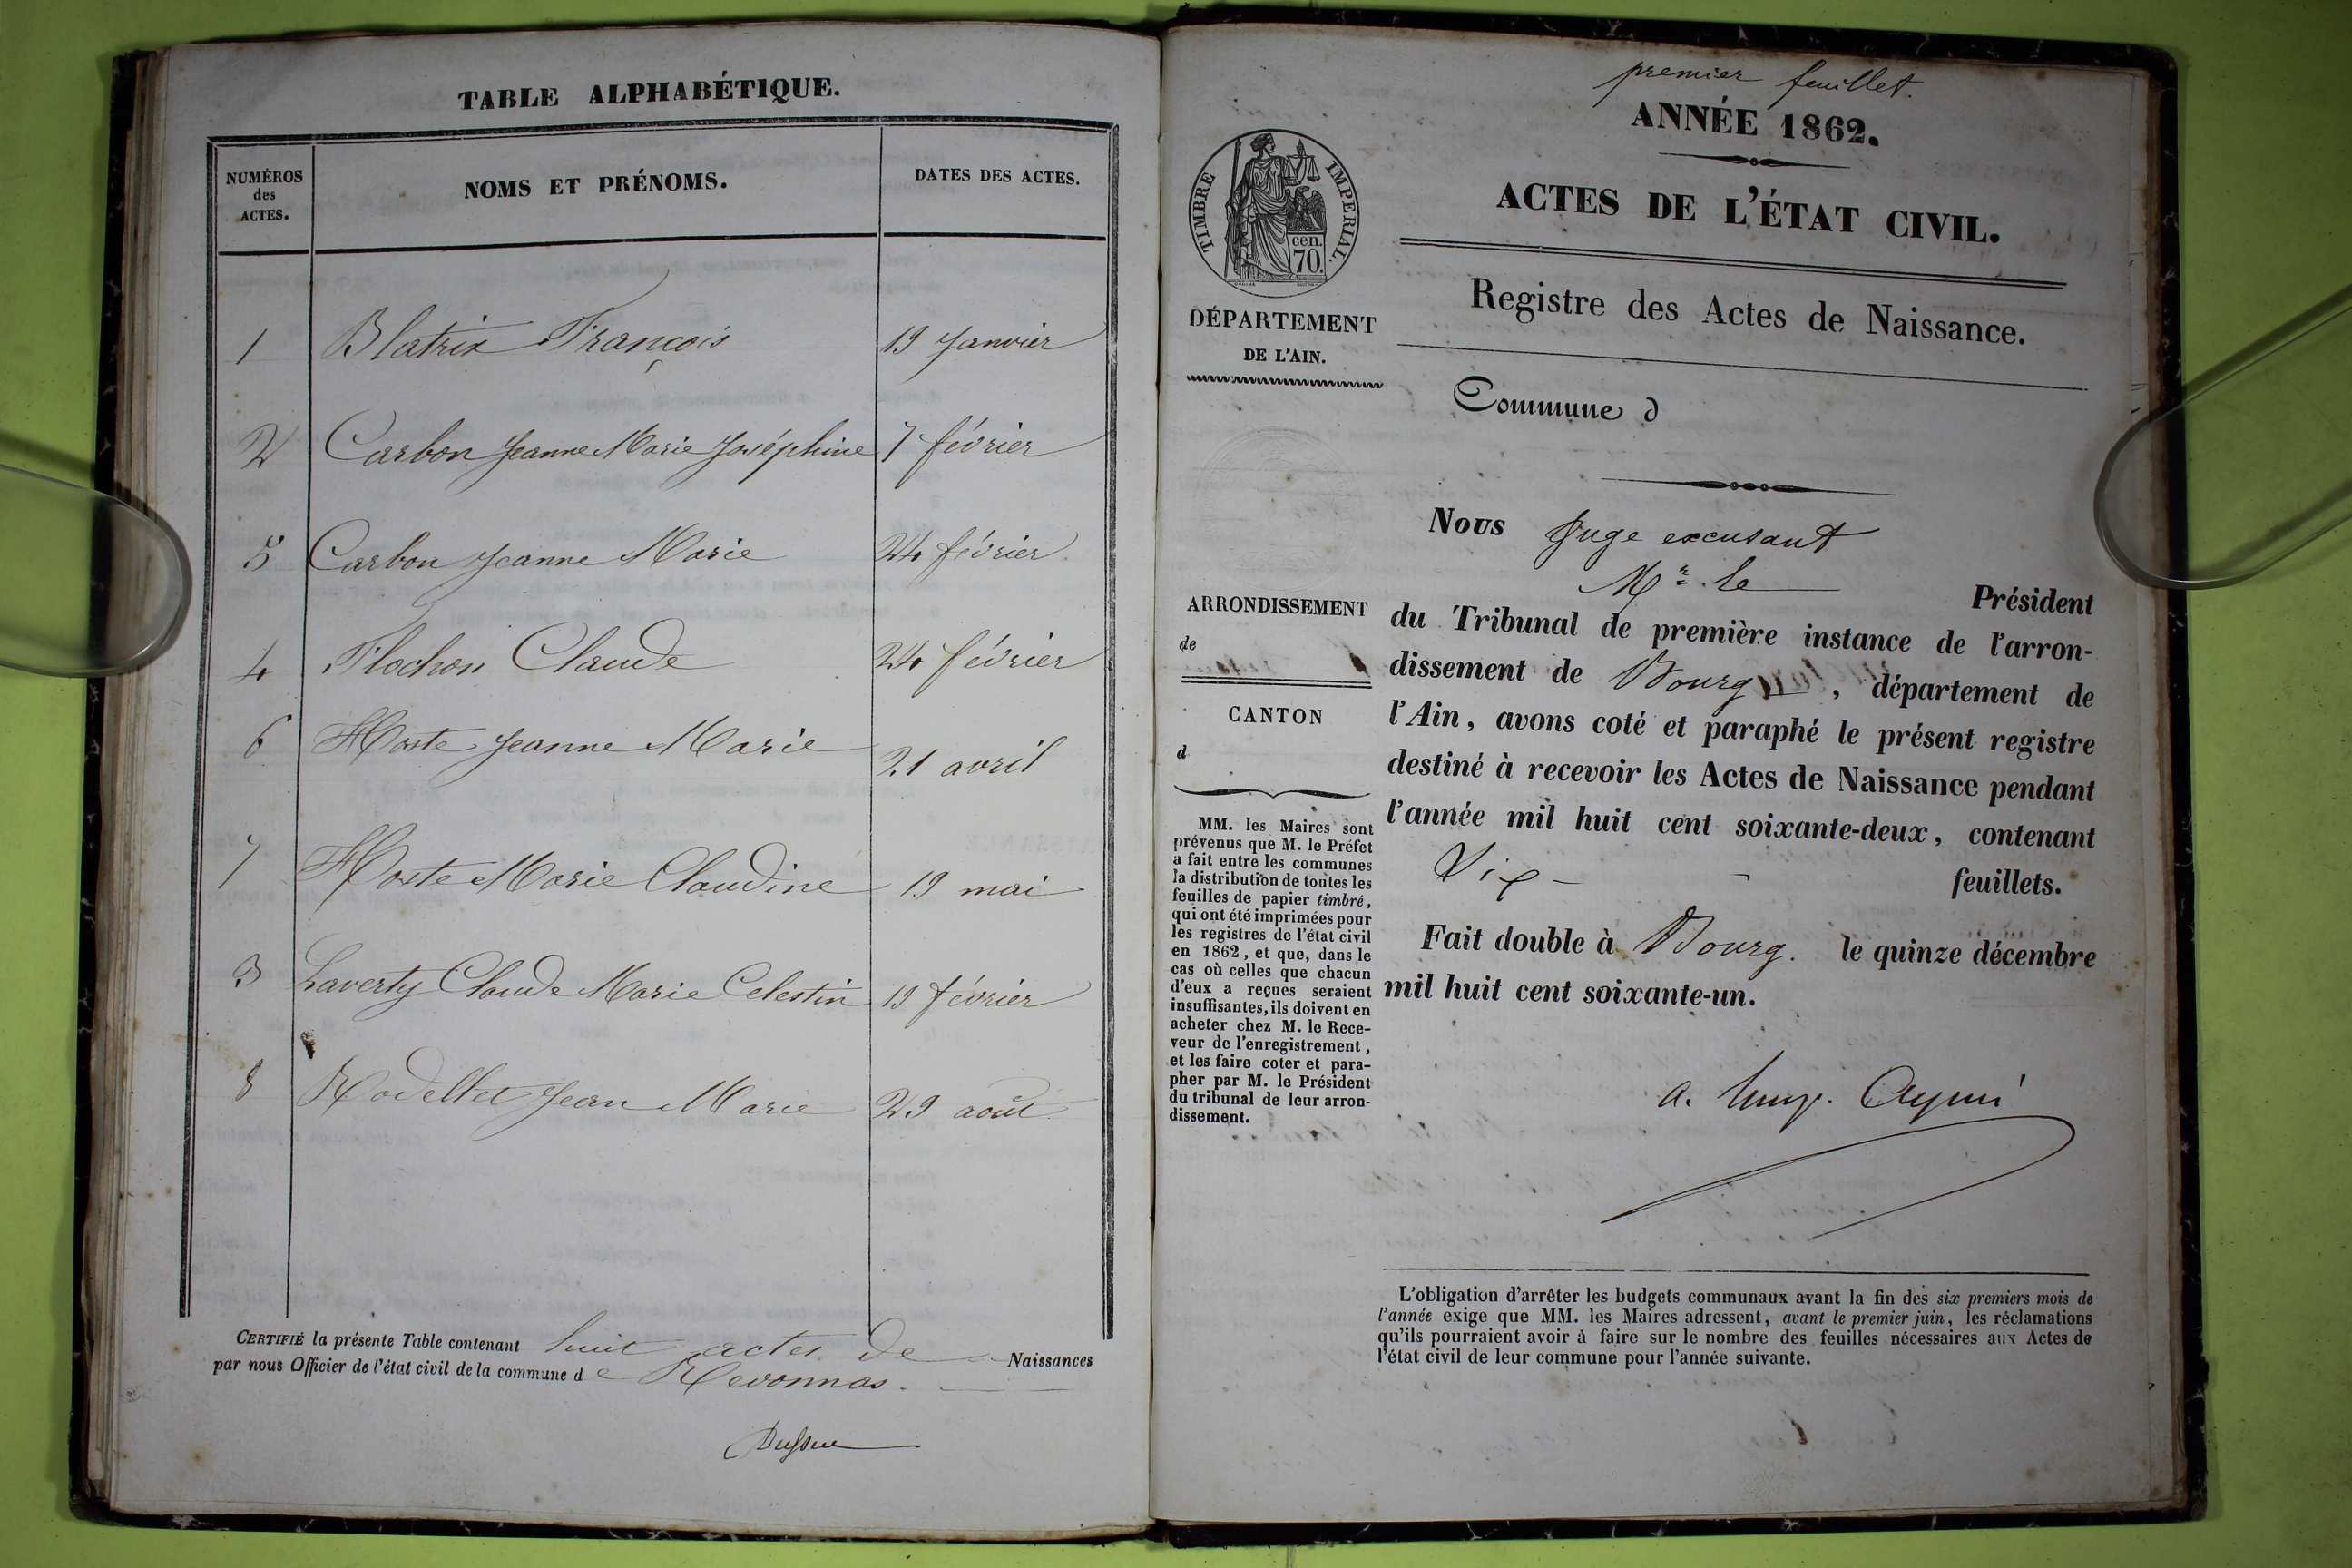 TABLE ALPHABÉTIQUE.
NUMÉROS des ACTES.
NOMS ET PRÉNOMS.
DATES DES ACTES.
1 Blatrix François 19 Janvier
2 Carbon Jeanne Marie Joséphine 7 février
5 Carbon Jeanne Marie 24 février
4 Flochon Claude 24 février
6 Hoste Jeanne Marie 21 avril
7 Hoste Marie Claudine 19 mai
3 Laverty Claude Marie Celestin 19 février
8 Rodellet Jean Marie 29 août
CERTIFIÉ la présente Table contenant huit actes de Naissances
par nous Officier de l'état civil de la commune de Revonnas.
premier feuillet.
ANNÉE 1862.
ACTES DE L'ÉTAT CIVIL.
TIMBRE IMPERIAL.
cen.
70.
DÉPARTEMENT
DE L'AIN.
Registre des Actes de Naissance.
Commune d
ARRONDISSEMENT
de
CANTON
d
MM. les Maires sont
prévenus que M. le Préfet
a fait entre les communes
la distribution de toutes les
feuilles de papier timbré,
qui ont été imprimées pour
les registres de l'état civil
en 1862, et que, dans le
cas où celles que chacun
d'eux a reçues seraient
insuffisantes, ils doivent en
acheter chez M. le Rece-
veur de l'enregistrement,
et les faire coter et para-
pher par M. le Président
du tribunal de leur arron-
dissement.
Nous Juge excusant
Mr. le Président
du Tribunal de première instance de l'arron-
dissement de Bourg, département de
l'Ain, avons coté et paraphé le présent registre
destiné à recevoir les Actes de Naissance pendant
l'année mil huit cent soixante-deux, contenant
feuillets.
Fait double à Bourg. le quinze décembre
mil huit cent soixante-un.
L'obligation d'arrêter les budgets communaux avant la fin des six premiers mois de
l'année exige que MM. les Maires adressent, avant le premier juin, les réclamations
qu'ils pourraient avoir à faire sur le nombre des feuilles nécessaires aux Actes de
l'état civil de leur commune pour l'année suivante.